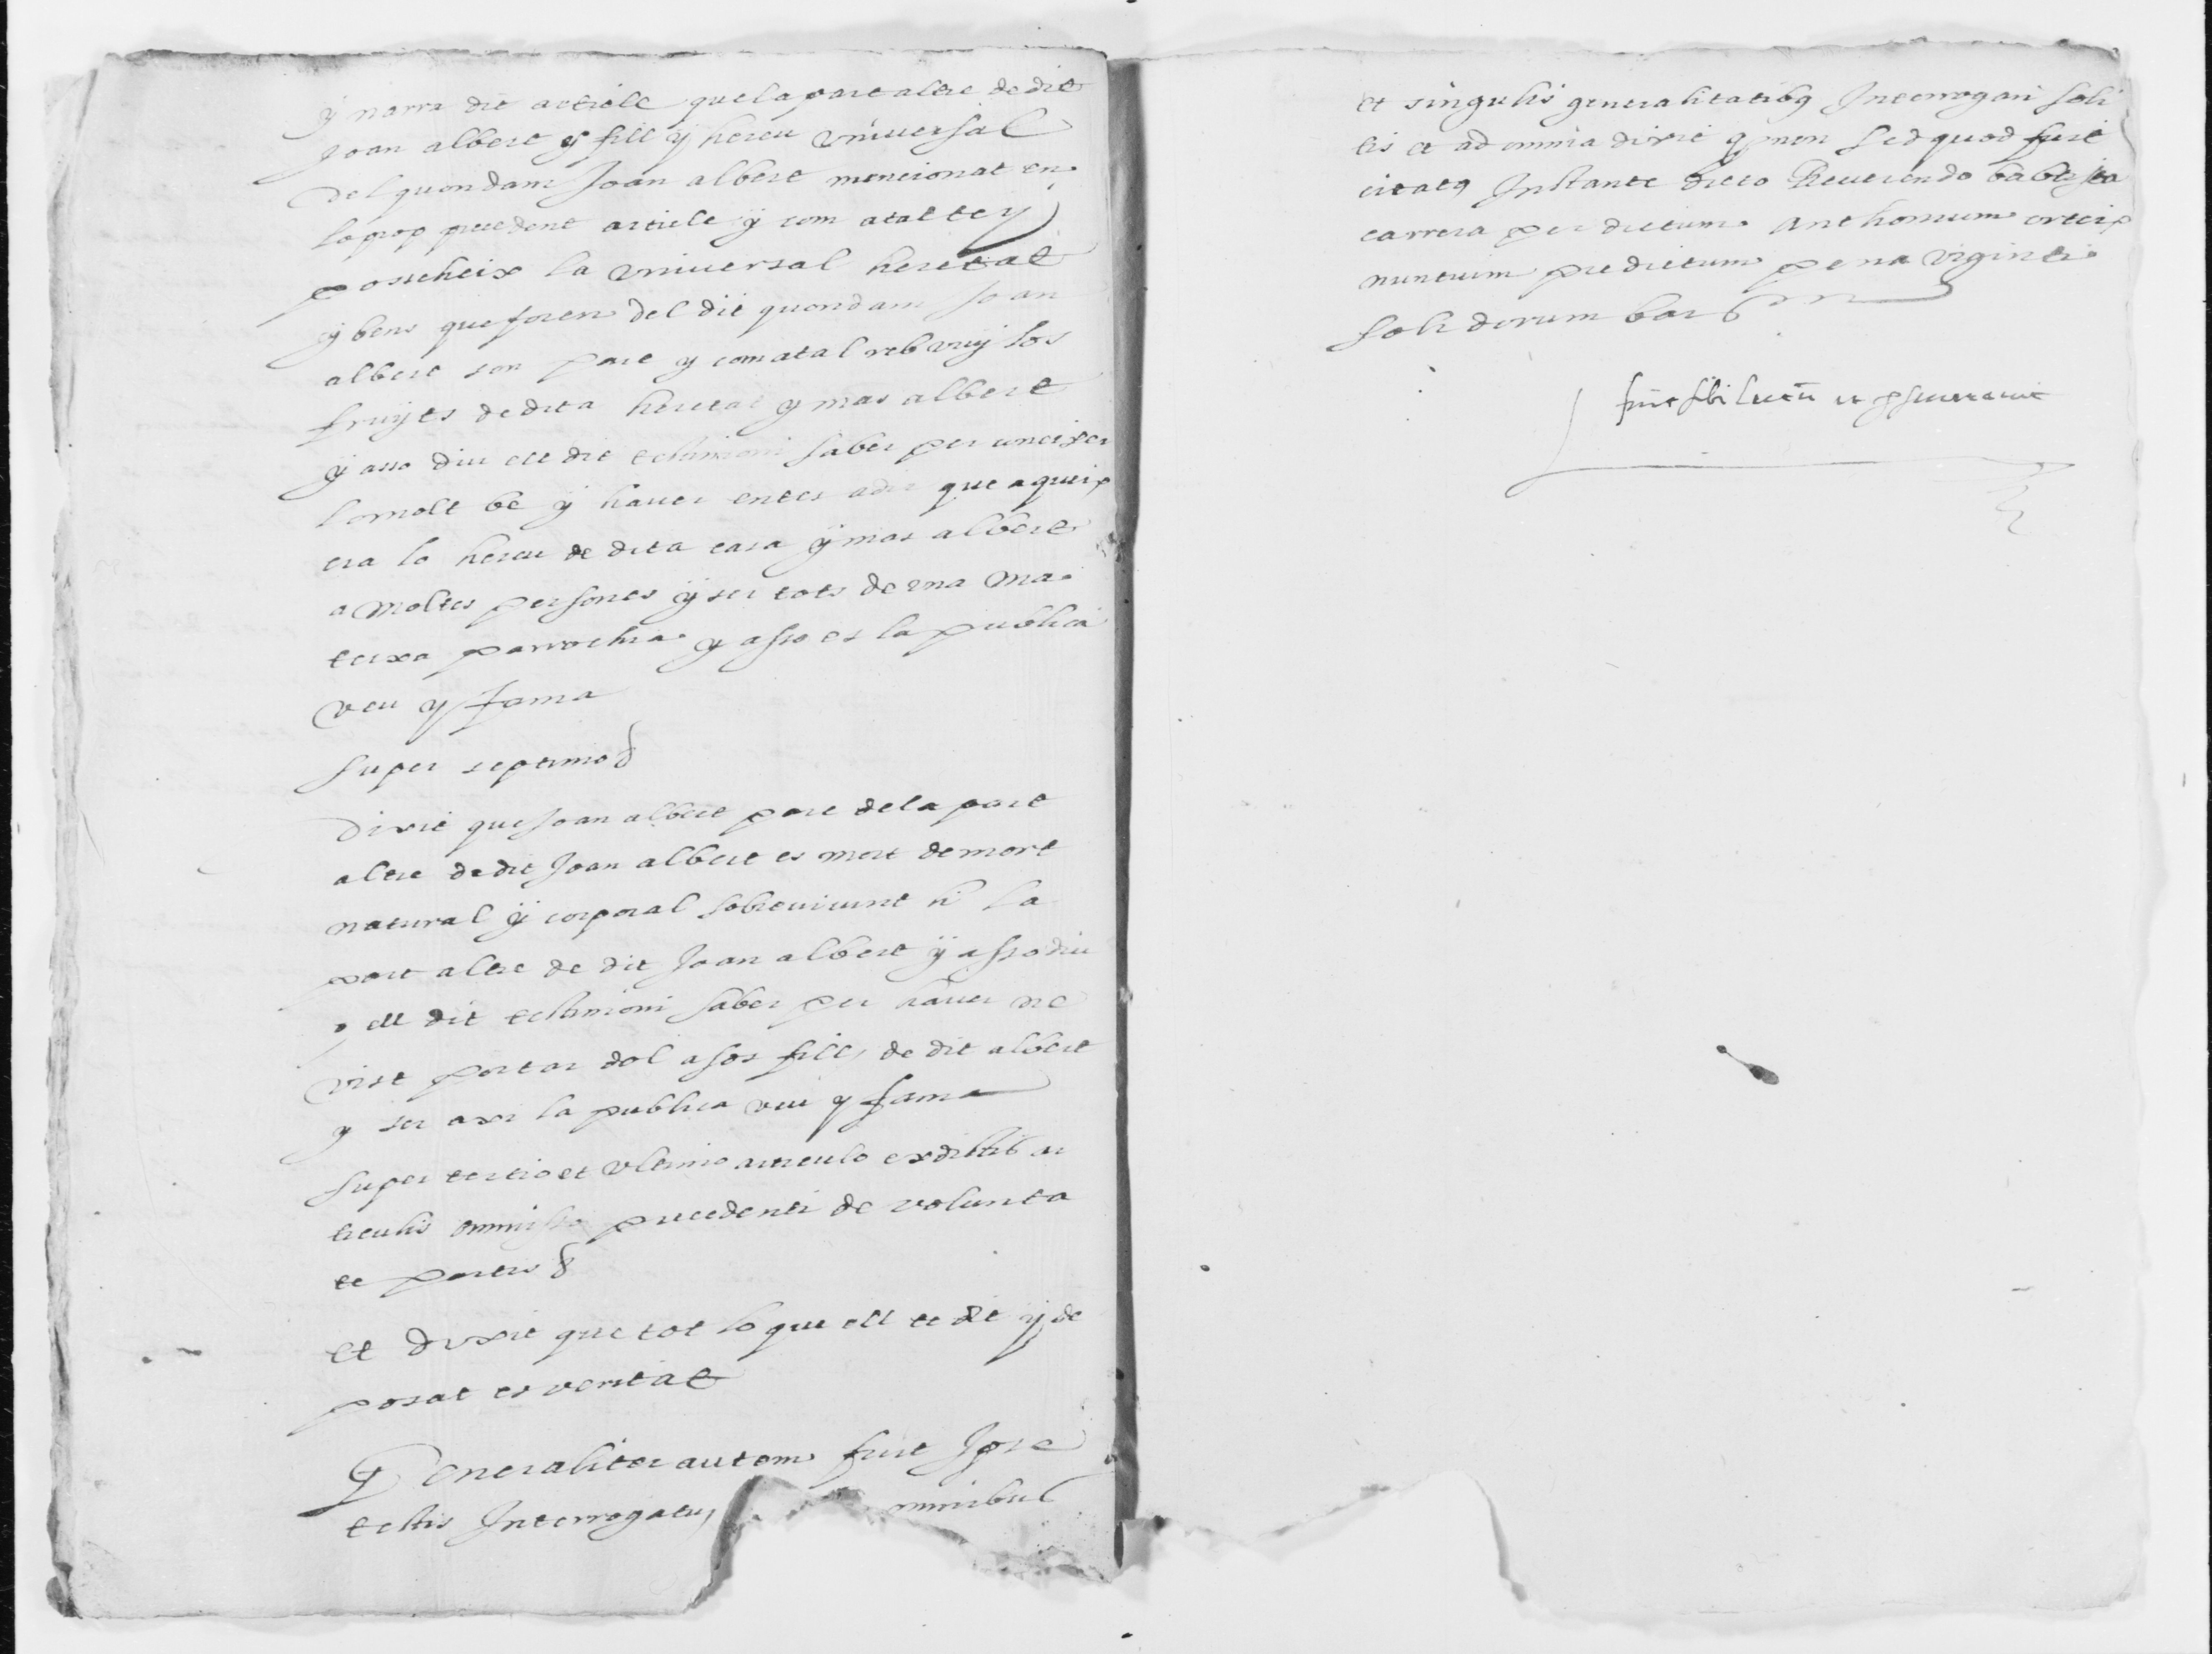 y narra dit article que la part altre de dit
Joan albert es fill y hereu vniuersal
del quondam Joan albert mencionat en
lo prop precedent article y com a tal te y
posseheix la vniuersal heretat
y bens que foren del dit quondam Joan
albert son pare y com a tal reb vuy los
fruyts de dita heretat y mas albert
y asso diu ell dit testimoni saber per coneixer
lo molt be y hauer entes a dir que aqueix
era lo hereu de dita casa y mas albert
a moltes persones y ser tots de vna ma
teixa parrochia y asso es la publica
veu y fama
super septimo
dixit que Joan albert pare de la part
altre de dit Joan albert es mort de mort
natural y corporal sobreviuint li la
part altre de dit Joan albert y asso diu
ell dit testimoni saber per hauer ne
vist portar dol a sos fills de dit albert
y ser axi la publica veu y fama
super tertio et vltimo articulo ex dictis ar
ticulis omnisso precedenti de volunta
te partis
et dixit que tot lo que ell te dit y de
posat es veritat
Generaliter autem fuit Ipse
testis Interrogatus omnibus
et singulis generalitatibus Interrogari soli
tis et ad omnia dixit q non sed quod fuit
citatus Instante dicto Reuerendo
carrera per dictum Anthonium
nuntium predictum pena viginti
solidorum bar
fuit sibi lectum et perseuerauit